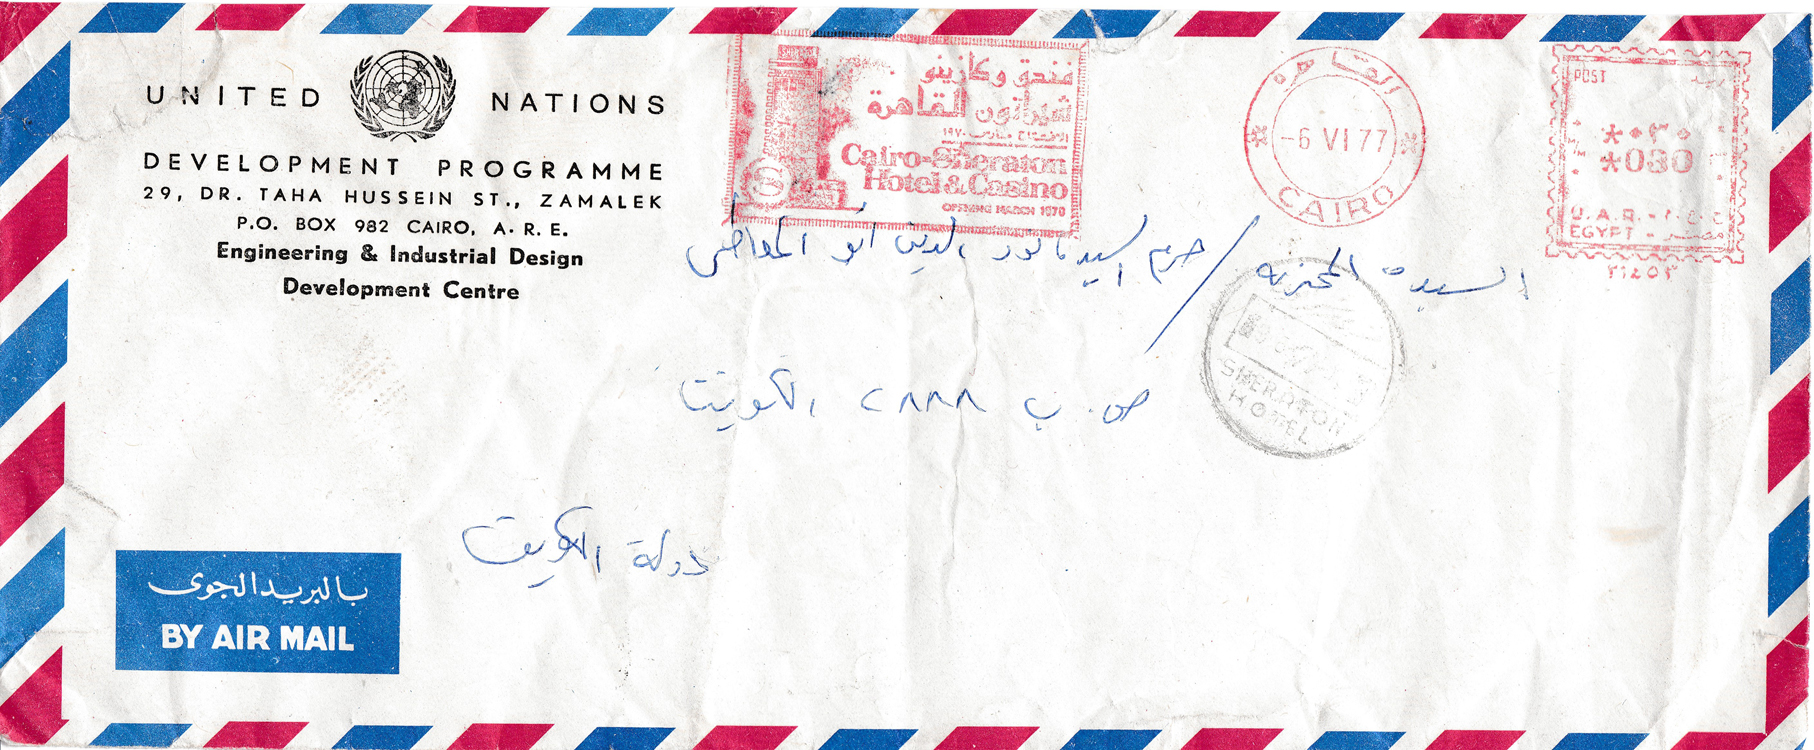 UNITED NATIONS
DEVELOPMENT PROGRAMME
29, DR. TAHA HUSSEIN ST., ZAMALEK
P.O. BOX 982 CAIRO, A. R. E.
Engineering & Industrial Design
Development Centre
فندق وكازينو
شيراتون القاهرة
الافتتاح مارس ١٩٧٠
Cairo-Sheraton
Hotel & Casino
OPENING MARCH 1970
القاهرة
-6 VI 77
CAIRO
POST بريد
*٠٣٠
*030
U.A.R. - ج.ع.م
EGYPT - مصر
٢١٤٥٣
السيدة المحترمة / حرم السيد الدين أبو المعاطي
ص ب ٢٨٨٨ الكويت
دولة الكويت
SHERATON
HOTEL
بالبريد الجوى
BY AIR MAIL